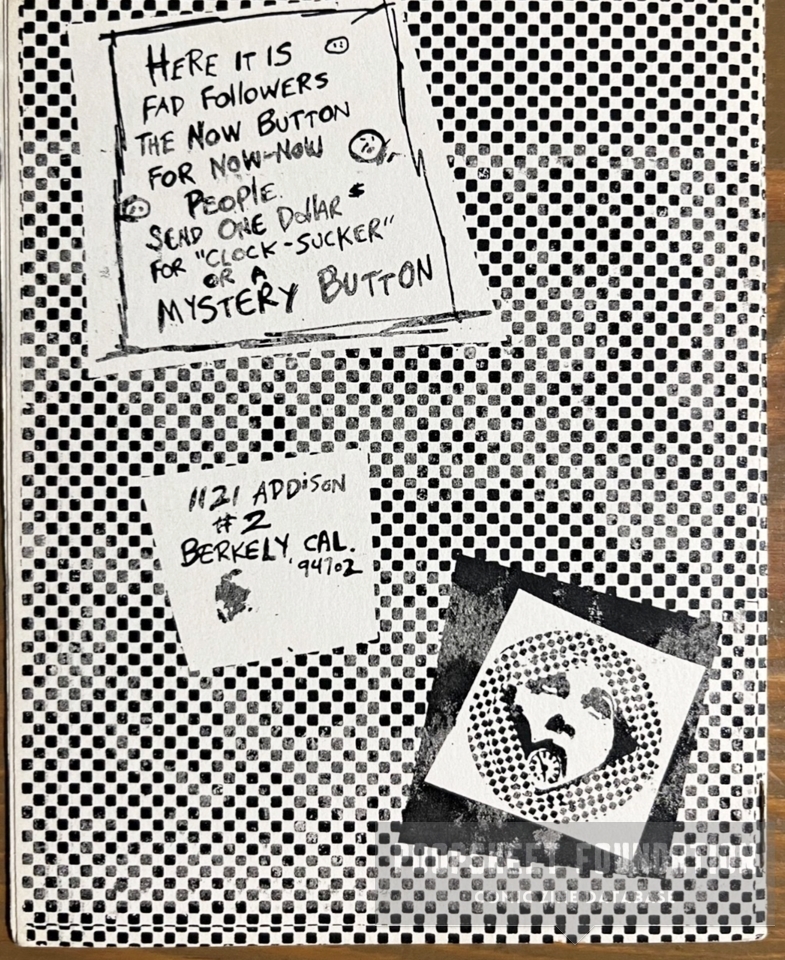 HERE IT IS
FAD FOllOWERS
THE NOW BUTTON
FOR NOW-NOW
PEOPlE.
SEND ONE DollAR $
FOR "CLOCK-SUCKER"
OR A
MYSTERY BUTTON
1121 ADDiSON
#2
BERKELY, CAL.
94702
POOPSHEET FOUNDATION
COMIC ZINE DATABASE